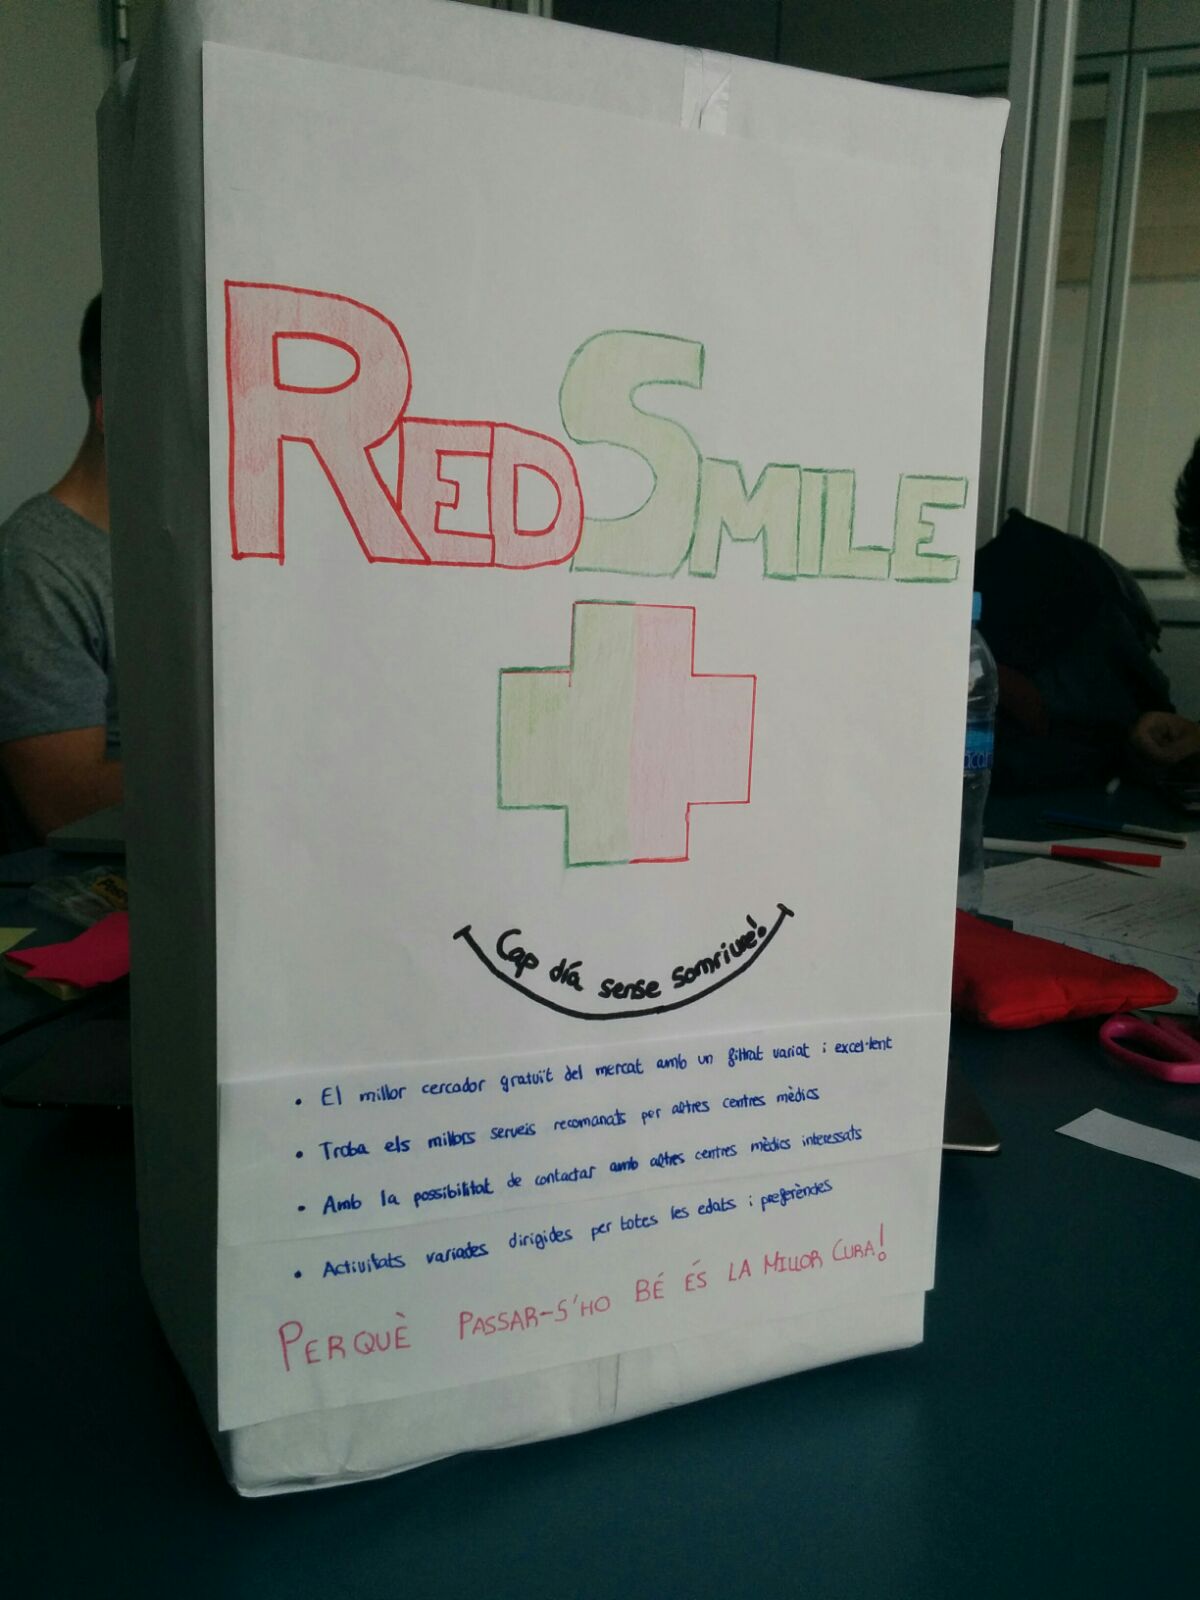 REDSMILE
Cap día sense somriure!
• El millor cercador gratuït del mercat amb un filtrat variat i excel·lent
• Troba els millors serveis recomanats per altres centres mèdics
• Amb la possibilitat de contactar amb altres centres mèdics interessats
• Activitats variades dirigides per totes les edats i preferències
PERQUÈ PASSAR-S'HO BÉ ÉS LA MILLOR CURA!